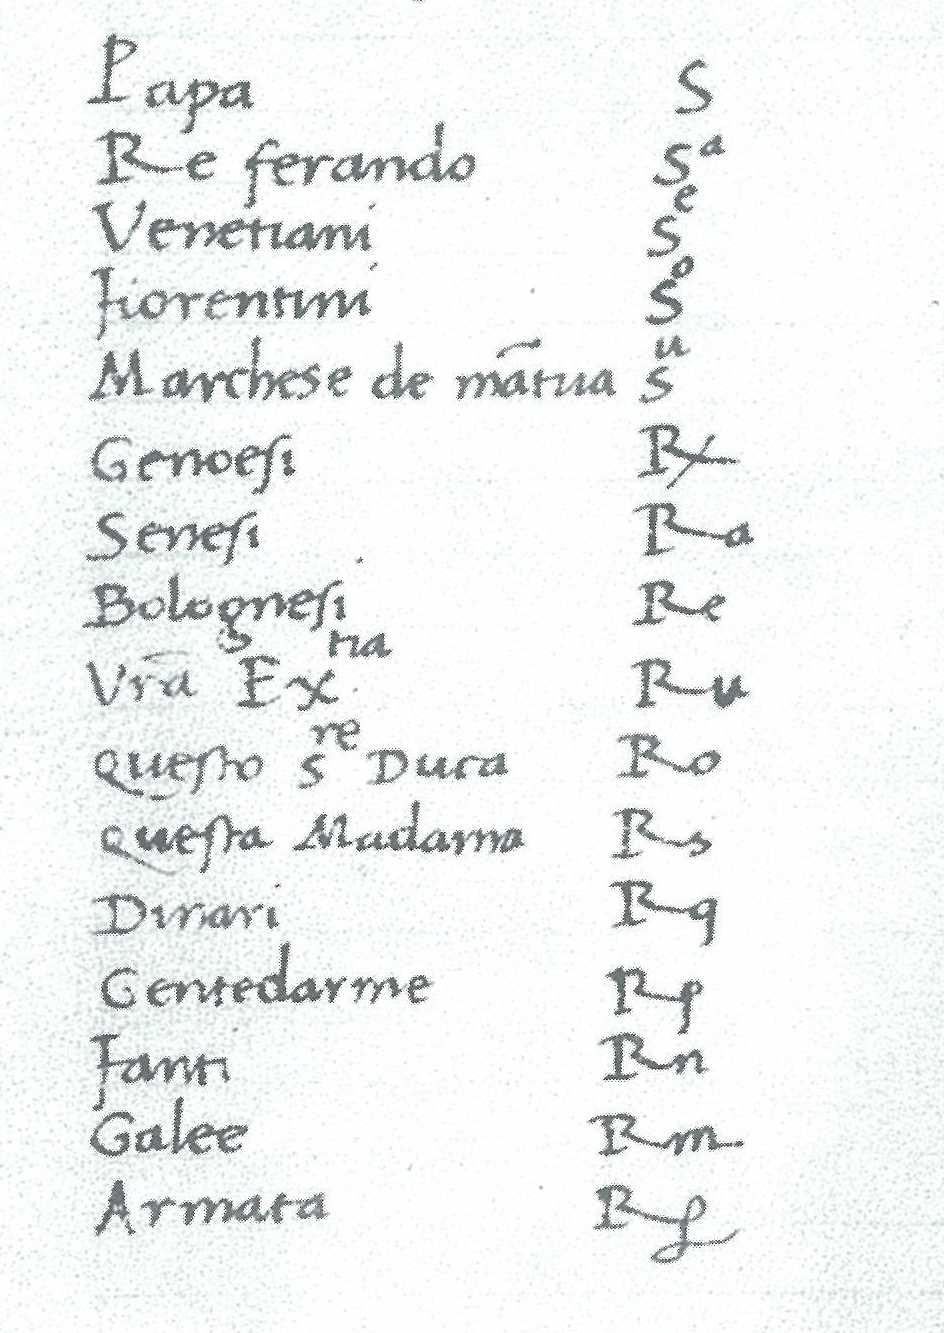 Papa S
Re ferando Sᵃ
Venetiani Sᵉ
fiorentini Sᵒ
Marchese de mãtua Sᵘ
Genoesi R
Senesi Ra
Bolognesi Re
Vr̃a Exᵗⁱᵃ Ru
Questo sʳᵉ Duca Ro
Questa Madama Rs
Dinari Rq
Gentedarme Rp
fanti Rn
Galee Rm
Armata R